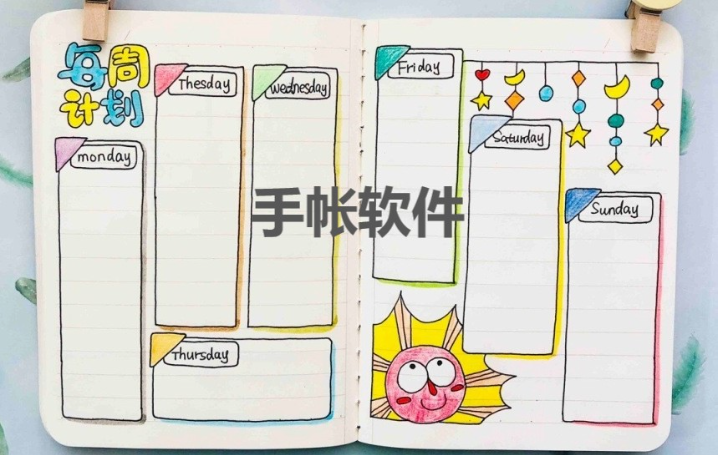 每周
计划
monday
Thesday
wednesday
Thursday
Friday
Saturday
Sunday
手帐软件